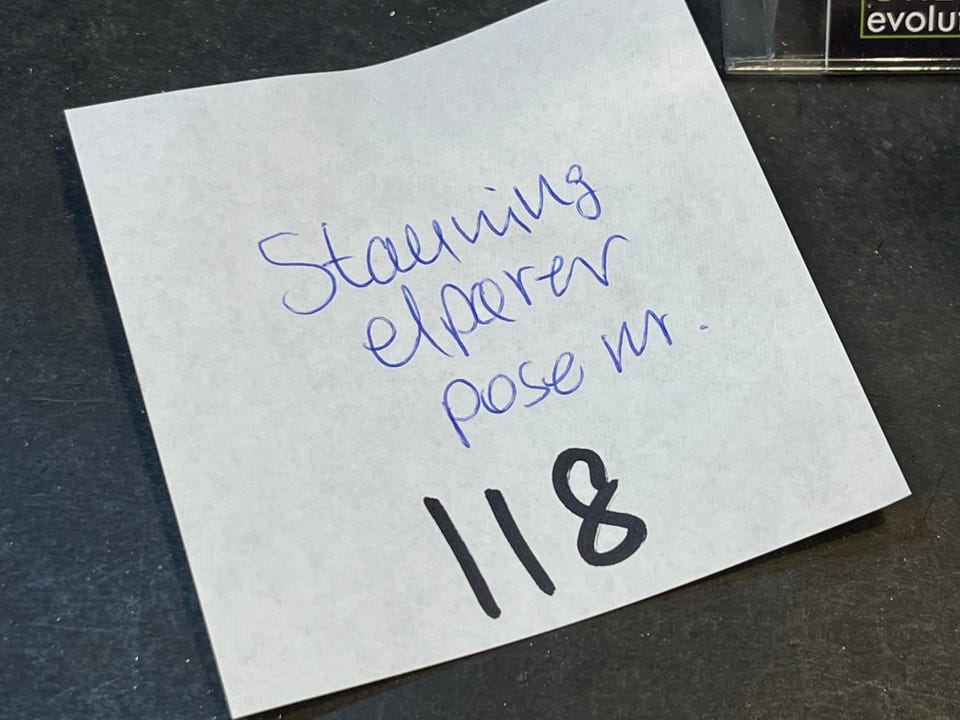 Stauning
elpærer
pose nr.
118
evolut